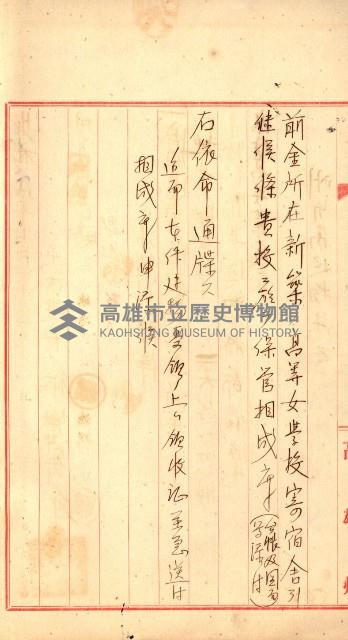 前金所在新築高等女學校寄宿舎引
継候條貴校ニ於テ保管相成度(台帳及図面写添付)
右依命通牒ス
追而本件建物受領ノ上ハ領收証至急送付
相成度申添候
高雄市立歷史博物館
KAOHSIUNG MUSEUM OF HISTORY
高雄州